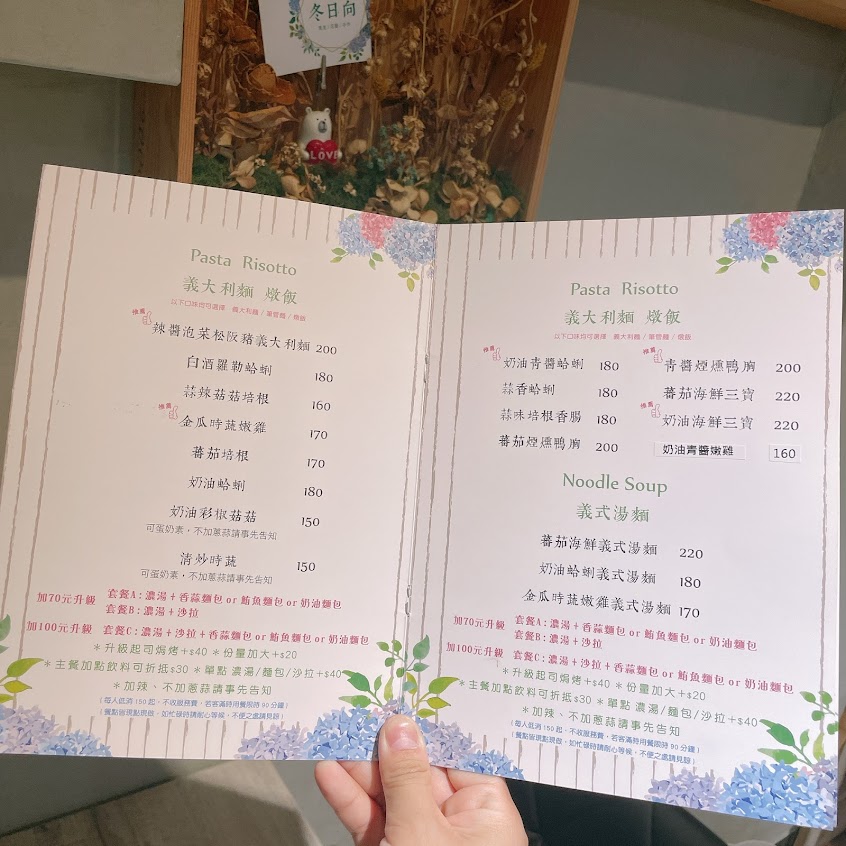 冬日向
LOVE
Pasta Risotto
義大利麵 燉飯
以下口味均可選擇 義大利麵 / 筆管麵 / 燉飯
推薦
辣醬泡菜松阪豬義大利麵 200
白酒羅勒蛤蜊 180
蒜辣菇菇培根 160
推薦
金瓜時蔬嫩雞 170
蕃茄培根 170
奶油蛤蜊 180
奶油彩椒菇菇 150
可蛋奶素，不加蔥蒜請事先告知
清炒時蔬 150
可蛋奶素，不加蔥蒜請事先告知
加70元升級 套餐A：濃湯＋香蒜麵包 or 鮪魚麵包 or 奶油麵包
套餐B：濃湯＋沙拉
加100元升級 套餐C：濃湯＋沙拉＋香蒜麵包 or 鮪魚麵包 or 奶油麵包
＊升級起司焗烤＋$40 ＊份量加大＋$20
＊主餐加點飲料可折抵$30 ＊單點 濃湯/麵包/沙拉＋$40
＊加辣、不加蔥蒜請事先告知
（每人低消 150 起，不收服務費，若客滿時用餐限時 90 分鐘）
（餐點皆現點現做，如忙碌時請耐心等候，不便之處請見諒）
Pasta Risotto
義大利麵 燉飯
以下口味均可選擇 義大利麵 / 筆管麵 / 燉飯
推薦
奶油青醬蛤蜊 180
推薦
青醬煙燻鴨胸 200
蒜香蛤蜊 180
蕃茄海鮮三寶 220
蒜味培根香腸 180
推薦
奶油海鮮三寶 220
蕃茄煙燻鴨胸 200
奶油青醬嫩雞 160
Noodle Soup
義式湯麵
蕃茄海鮮義式湯麵 220
奶油蛤蜊義式湯麵 180
金瓜時蔬嫩雞義式湯麵 170
加70元升級 套餐A：濃湯＋香蒜麵包 or 鮪魚麵包 or 奶油麵包
套餐B：濃湯＋沙拉
加100元升級 套餐C：濃湯＋沙拉＋香蒜麵包 or 鮪魚麵包 or 奶油麵包
＊升級起司焗烤＋$40 ＊份量加大＋$20
＊主餐加點飲料可折抵$30 ＊單點 濃湯/麵包/沙拉＋$40
＊加辣、不加蔥蒜請事先告知
（每人低消 150 起，不收服務費，若客滿時用餐限時 90 分鐘）
（餐點皆現點現做，如忙碌時請耐心等候，不便之處請見諒）